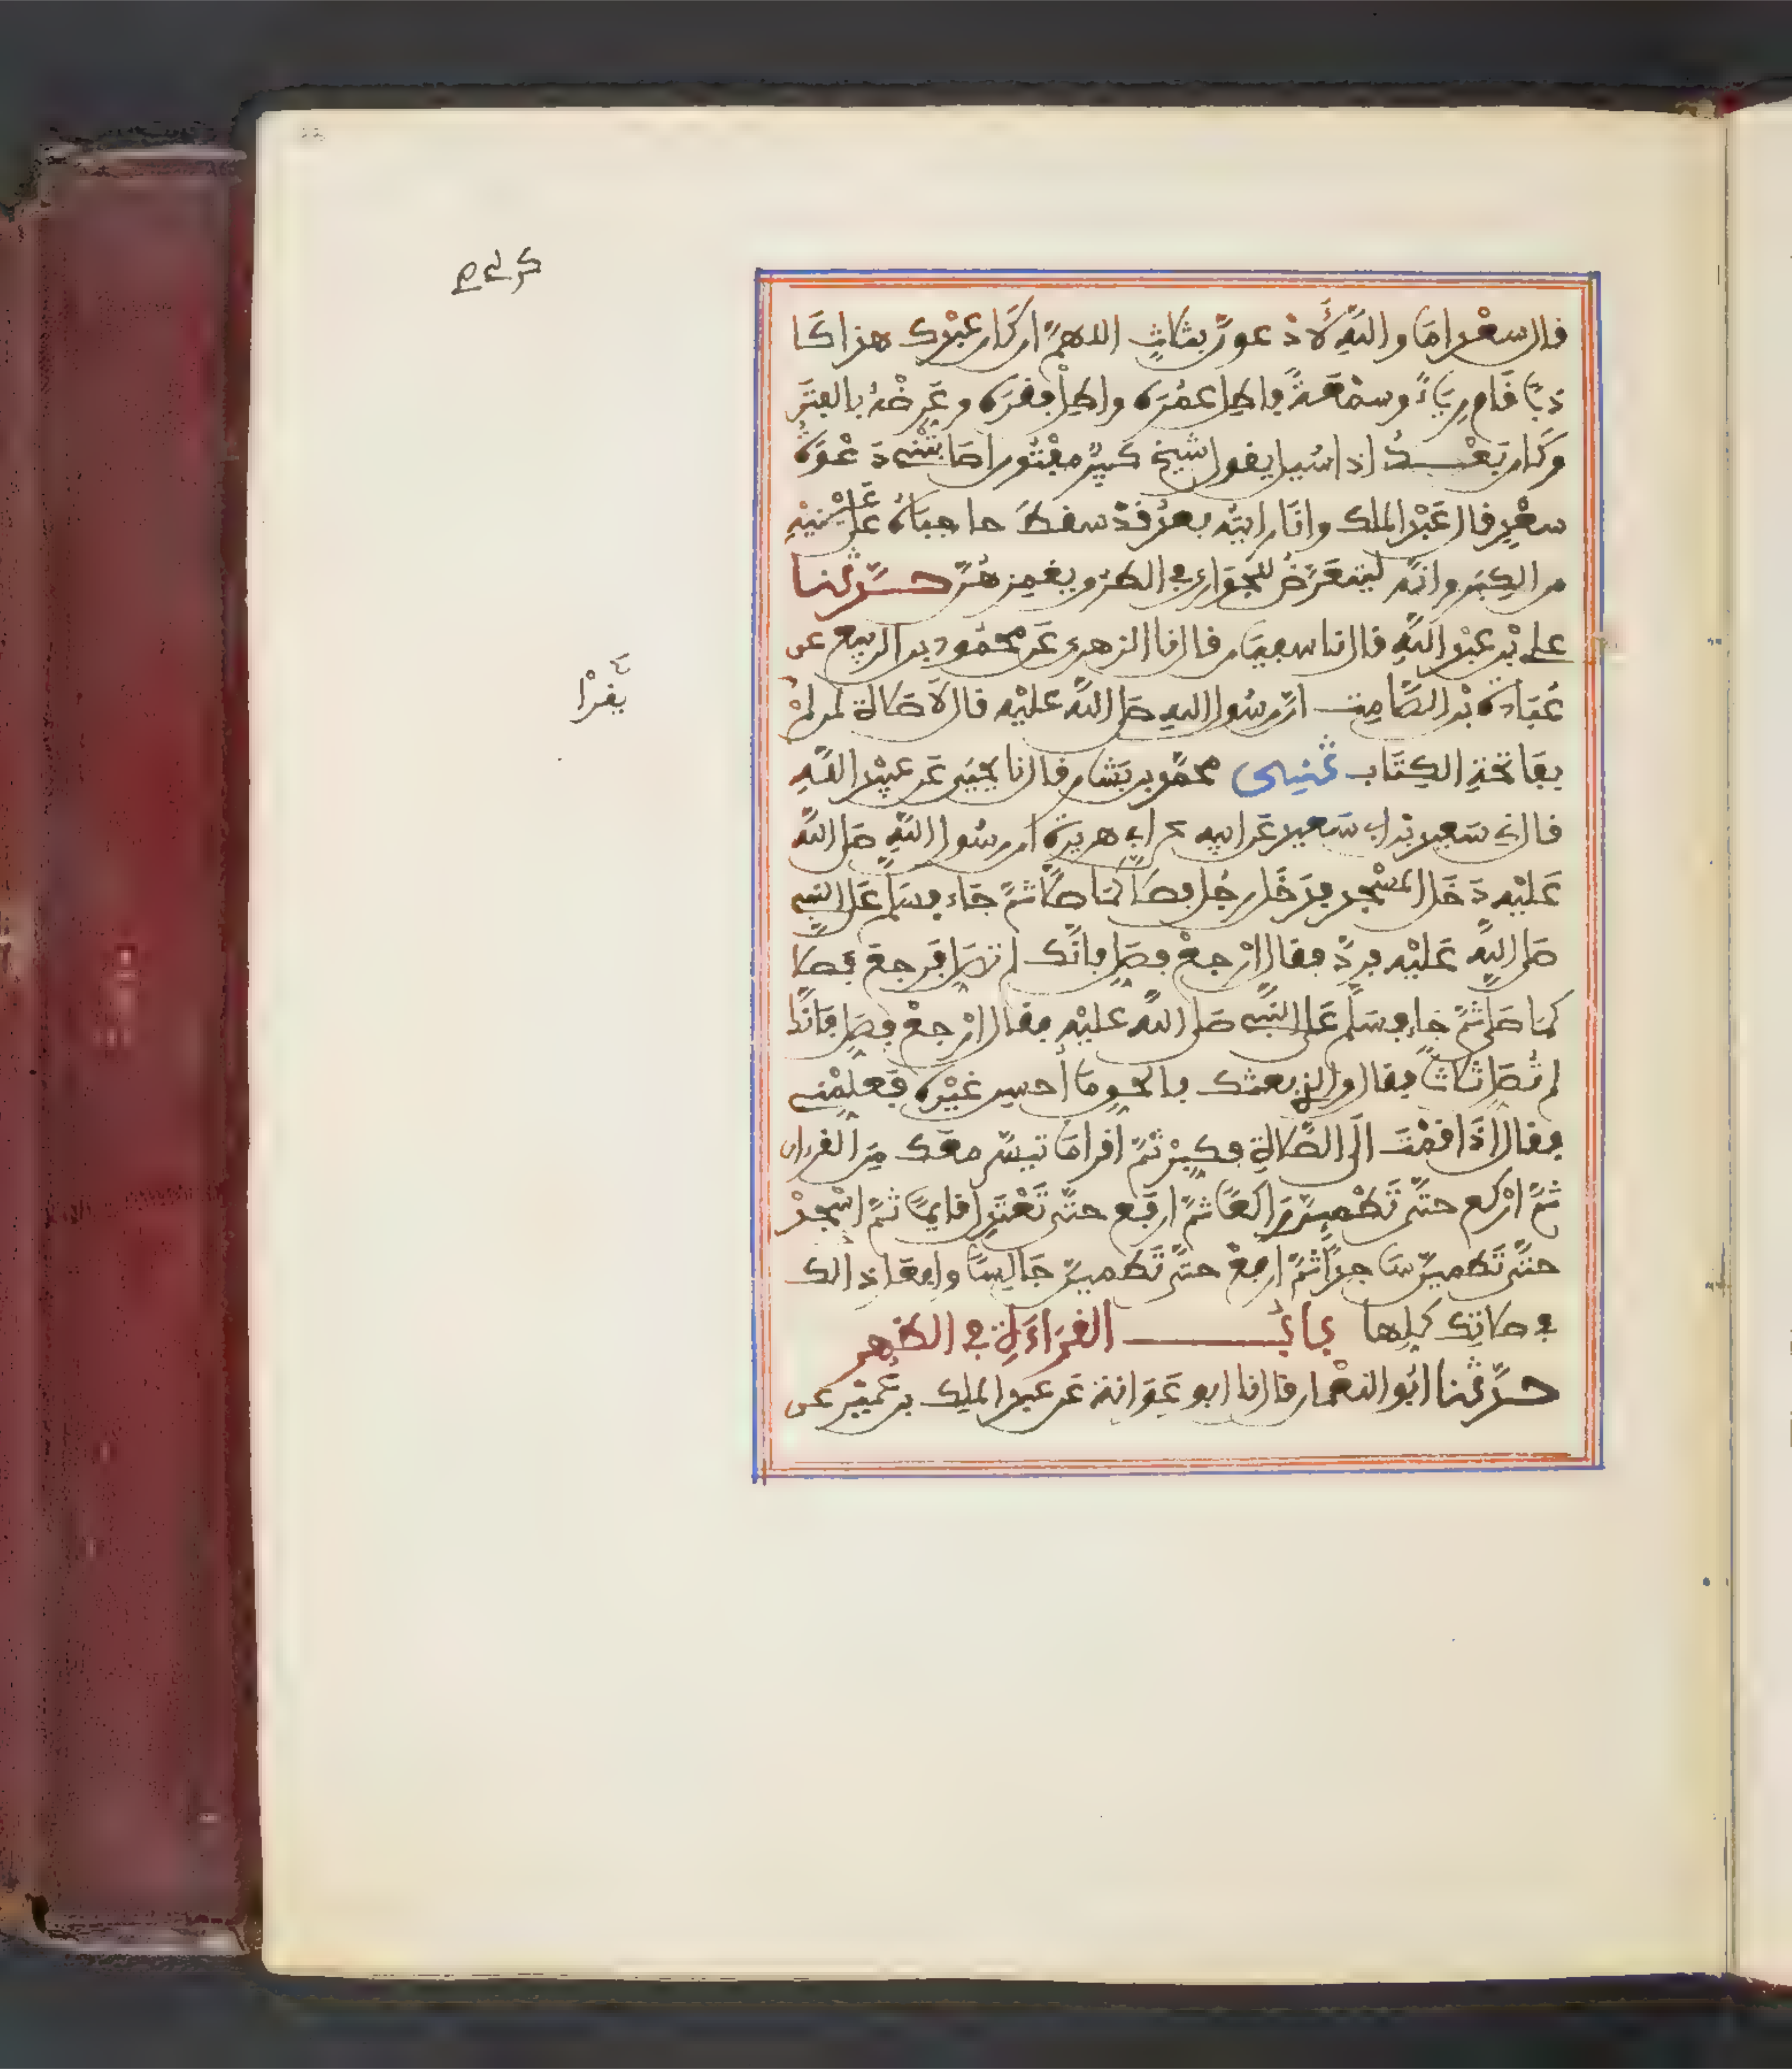 قال سعد اما والله لأدعون بثلاث اللهم ان كان عبدك هذا كا
ذبا قام رياء وسمعة فاطل عمره واطل فقره وعرضه بالفتن
وكان بعد اذا سيل يقول شيخ كبير مفتون اصابتني دعوة
سعد قال عبد الملك وانا رايته بعد قد سقط حاجباه على عينيه
من الكبر وانه ليتعرض للجواري في الطرق ويغمزهن حدثنا
علي بن عبد الله قال نا سفيان قال نا الزهري عن محمود بن الربيع عن
عبادة بن الصامت ان رسول الله صلى الله عليه قال لا صلاة لمن لم
يقرأ
بفاتحة الكتاب ثني محمد بن بشار قال نا يحيى عن عبيد الله
قال ني سعيد بن ابي سعيد عن ابيه عن ابي هريرة ان رسول الله صلى الله
عليه دخل المسجد فدخل رجل فصلى كما صلى ثم جاء فسلم على النبي
صلى الله عليه فرد فقال ارجع فصل فانك لم تصل فرجع فصلى
كما صلى ثم جاء فسلم على النبي صلى الله عليه فقال ارجع فصل فانك
لم تصل ثلاثا فقال والذي بعثك بالحق ما أحسن غيره فعلمني
فقال اذا قمت الى الصلاة فكبر ثم اقرا ما تيسر معك من القرءان
ثم اركع حتى تطمين راكعا ثم ارفع حتى تعتدل قايما ثم اسجد
حتى تطمين ساجدا ثم ارفع حتى تطمين جالسا وافعل ذالك
في صلاتك كلها باب القراءة في الظهر
حدثنا ابو النعمان قال نا ابو عوانة عن عبد الملك بن عمير عن